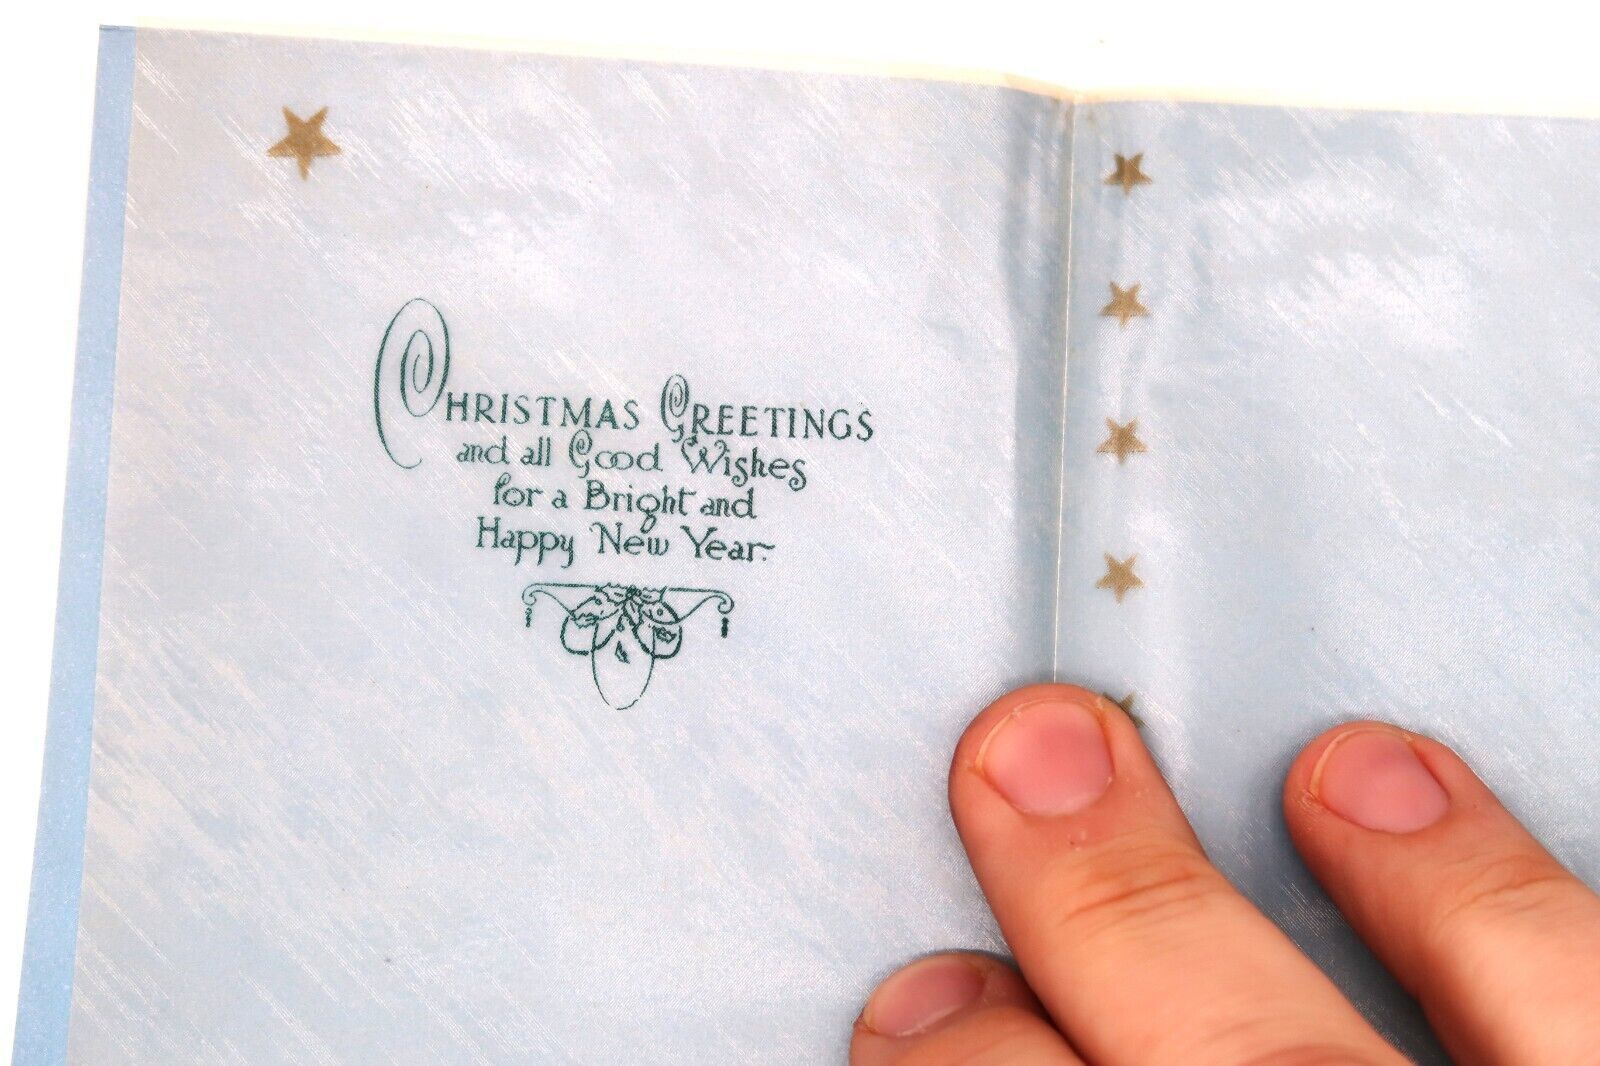 CHRISTMAS GREETINGS
and all Good Wishes
for a Bright and
Happy New Year.